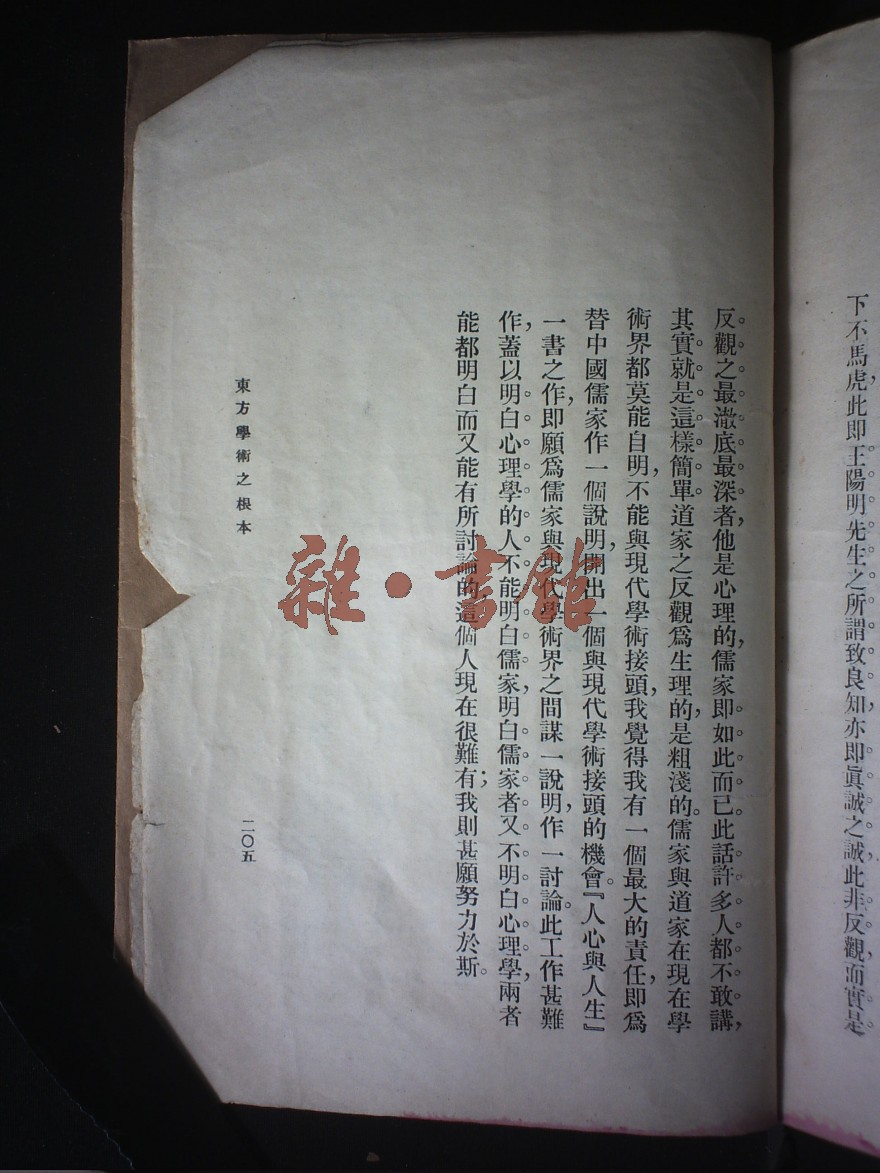 下不馬虎，此即王陽明先生之所謂致良知，亦即眞誠之誠，此非反觀，而實是
反觀之最澈底最深者，他是心理的，儒家即如此而已。此話許多人都不敢講，
其實就是這樣簡單。道家之反觀爲生理的，是粗淺的。儒家與道家在現在學
術界都莫能自明，不能與現代學術接頭，我覺得我有一個最大的責任，即爲
替中國儒家作一個說明，開出一個與現代學術接頭的機會。『人心與人生』
一書之作，即願爲儒家與現代學術界之間謀一說明，作一討論。此工作甚難
作，蓋以明白心理學的人不能明白儒家，明白儒家者又不明白心理學，兩者
能都明白而又能有所討論的這個人現在很難有；我則甚願努力於斯。
東方學術之根本
二〇五
雜·書館